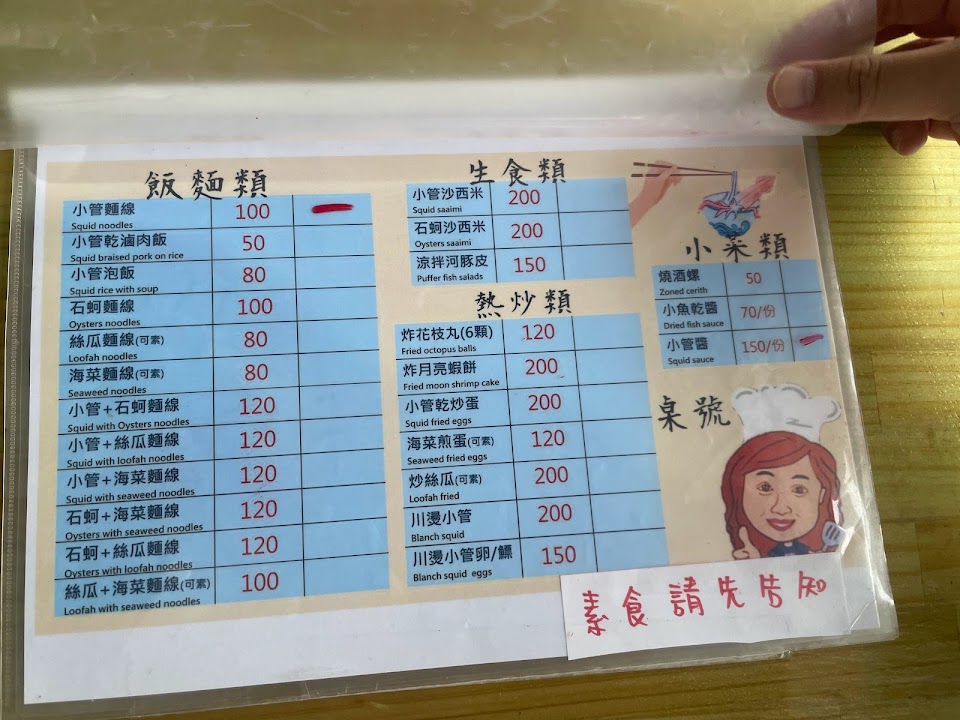 飯麵類
小管麵線 100
Squid noodles
小管乾滷肉飯 50
Squid braised pork on rice
小管泡飯 80
Squid rice with soup
石蚵麵線 100
Oysters noodles
絲瓜麵線(可素) 80
Loofah noodles
海菜麵線(可素) 80
Seaweed noodles
小管+石蚵麵線 120
Squid with Oysters noodles
小管+絲瓜麵線 120
Squid with loofah noodles
小管+海菜麵線 120
Squid with seaweed noodles
石蚵+海菜麵線 120
Oysters with seaweed noodles
石蚵+絲瓜麵線 120
Oysters with loofah noodles
絲瓜+海菜麵線(可素) 100
Loofah with seaweed noodles
生食類
小管沙西米 200
Squid saaimi
石蚵沙西米 200
Oysters saaimi
涼拌河豚皮 150
Puffer fish salads
熱炒類
炸花枝丸(6顆) 120
Fried octopus balls
炸月亮蝦餅 200
Fried moon shrimp cake
小管乾炒蛋 200
Squid fried eggs
海菜煎蛋(可素) 120
Seaweed fried eggs
炒絲瓜(可素) 200
Loofah fried
川燙小管 200
Blanch squid
川燙小管卵/鰾 150
Blanch squid eggs
小菜類
燒酒螺 50
Zoned cerith
小魚乾醬 70/份
Dried fish sauce
小管醬 150/份
Squid sauce
桌號
素食請先告知